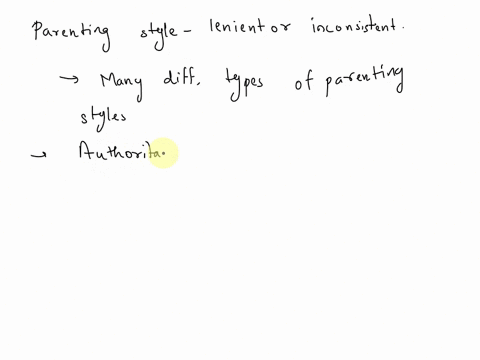 Parenting style - lenient or inconsistent.
→ Many diff. types of parenting
styles
→ Authorita